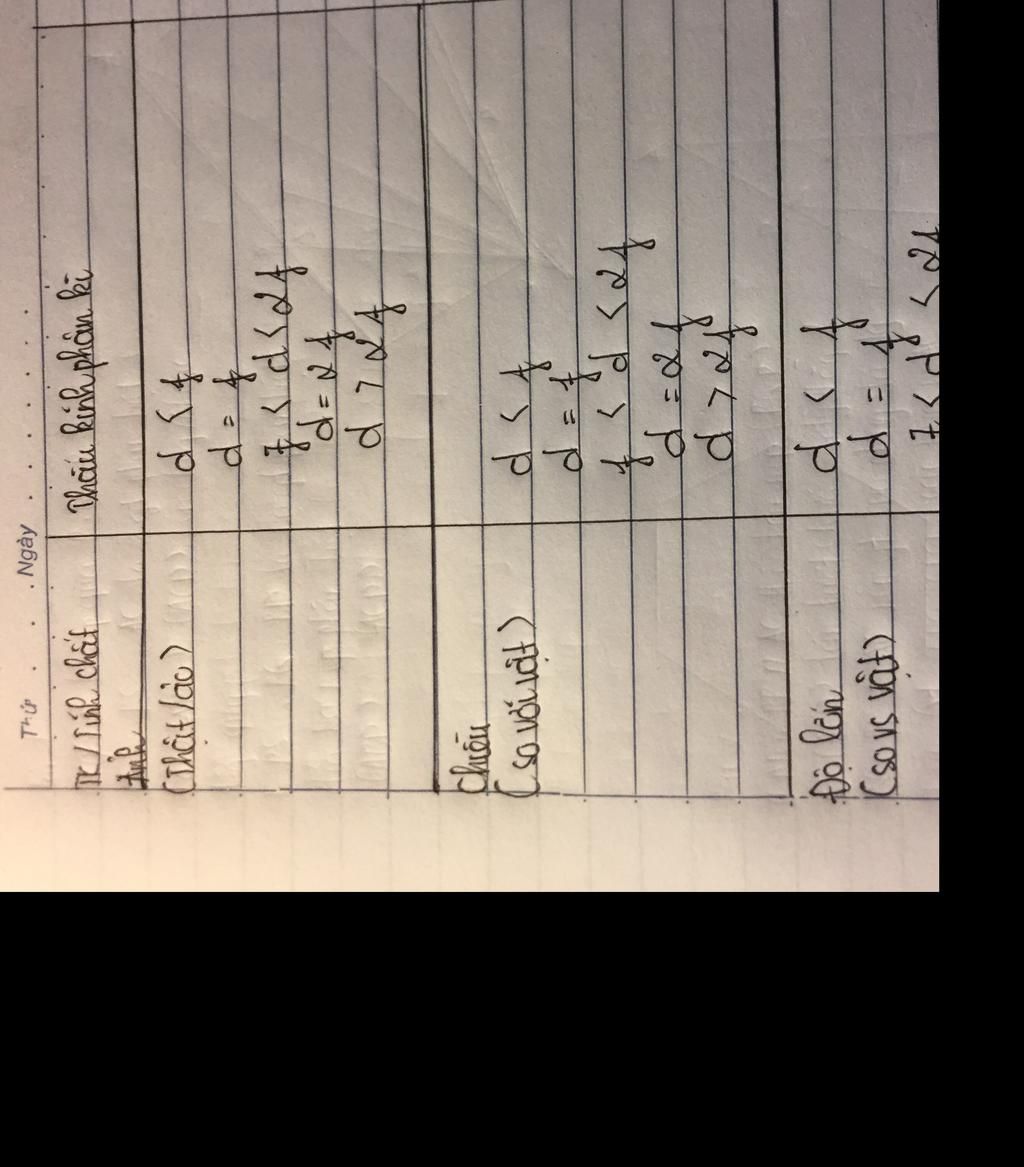 Thứ . . Ngày . . . . . . . .
TK / Tính chất Thấu kính phân kì
Ảnh
(Thật / ảo) d < f
d = f
f < d < 2f
d = 2f
d > 2f
Chiều
(so với vật) d < f
d = f
f < d < 2f
d = 2f
d > 2f
Độ lớn d < f
(so vs vật) d = f
f < d < 2f